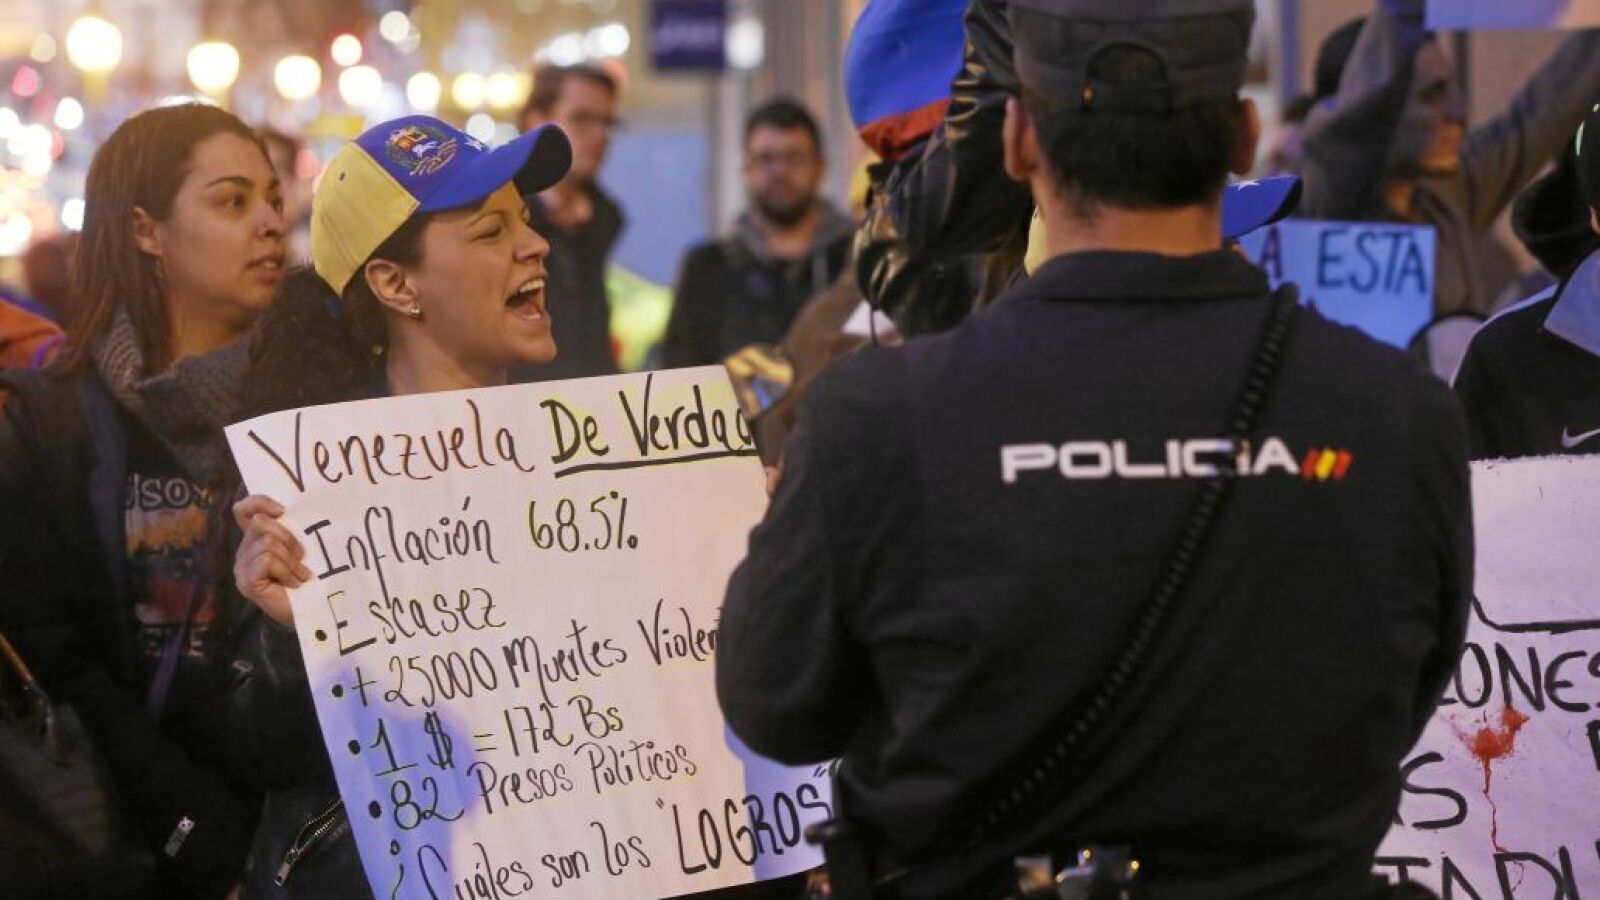 Venezuela De Verdad
Inflación 68.5%
• Escasez
• + 25000 Muertes Violen
• 1 $ = 172 Bs
• 82 Presos Políticos
¿Cuáles son los "LOGROS"
POLICIA
A ESTA
IONES
AS